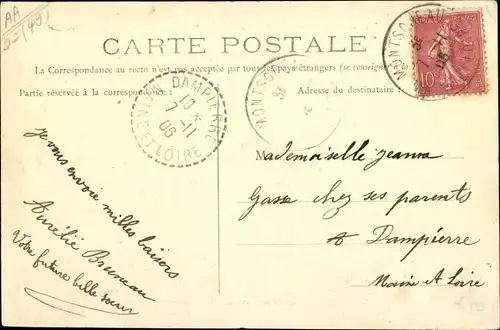 AA
CARTE POSTALE
La Correspondance au recto n'est pas acceptée par tous les pays étrangers (se renseigner à la
Partie réservée à la correspondance.
Adresse du destinataire.
DAMPIERRE
10
7 -11
06
MAINE ET LOIRE
MONTSOREAU
10
Mademoiselle Jeanne
Gasse chez ses parents
A Dampierre
Maine et Loire
Je vous envoie milles baisers
Aurélie Bruneau
Votre future belle sœur